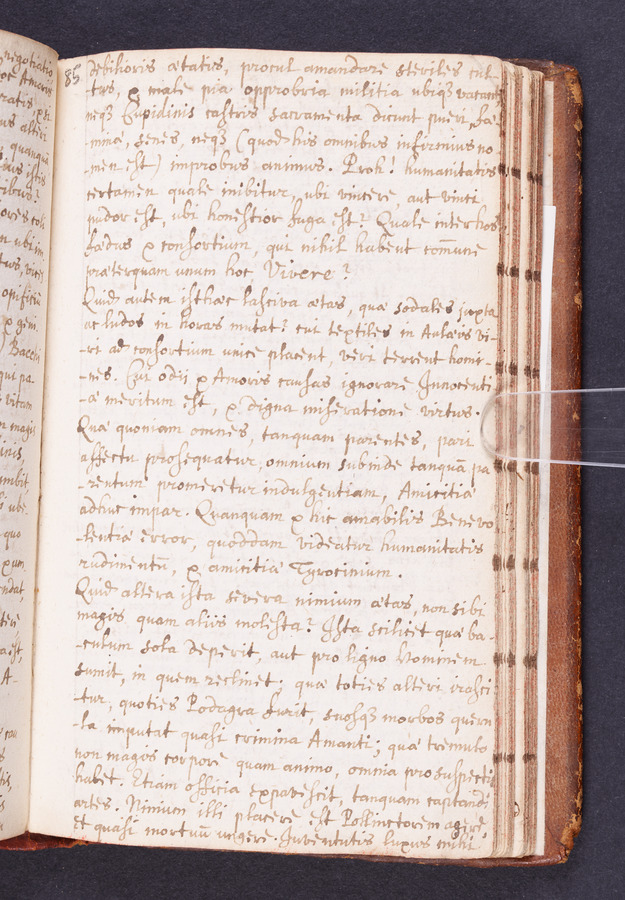 85
debilioris ætatis, procul amandare steriles cul-
tus, & male pia opprobria militia ubiq; vacant
neq; Cupidinis castris sacramenta dicunt pueri, fæ-
minæ, senes, neq; (quod his omnibus infirmius no-
-men est) improbus animus. Proh! humanitatis
certamen quale initur, ubi vincere, aut vinci
pudor est, ubi honestior fuga est? Quale inter hos
fædus & consortium, qui nihil habent com̄une
præterquam unum hoc, Vivere?
Quid autem isthæc lasciva ætas, quæ sodales juxta
ac ludos in horas mutat? cui textiles in Aulæis vi-
-ri ad consortium unice placent, veri terrent homi-
-nes. Cui odii & Amoris causas ignorare Innocenti-
-æ meritum est, & digna miseratione virtus.
Quæ quoniam omnes, tanquam parentes, pari
affectu prosequatur, omnium subinde tanquā pa-
-rentum promeretur indulgentiam, Amicitiæ
adhuc impar. Quanquam & hic amabilis Benevo-
-lentiæ error, quoddam videatur humanitatis
rudimentū, & amicitiæ Tyrocinium.
Quid altera ista severa nimium ætas, non sibi
magis quam aliis molesta? Ista scilicet quæ ba-
-culum sola deperit, aut pro ligno Hominem
sumit, in quem reclinet; quæ toties alteri irasci-
-tur, quoties Podagra furit, suosq; morbos queru-
-la imputat quasi crimina Amanti; quæ tremulo
non magis corpore quam animo, omnia pro suspectis
habet. Etiam officia expavescit, tanquam captandi
artes. Nimium illi placere est Pollinctorem agere,
et quasi mortuū ungere. Juventutis luxus mihi